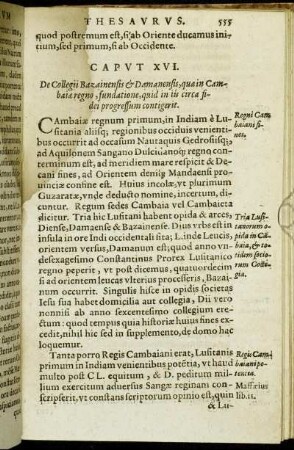 THESAVRVS. 555
quod postremum est, si ab Oriente ducamus ini-
tium, sed primum, si ab Occidente.
CAPVT XVI.
De Collegii Bazainensis & Damanensis, qua in Cam-
baia regno, fundatione, quid in iis circa fi-
dei progressum contigerit.
Cambaiæ regnum primum, in Indiam è Lu-
sitania aliisq; regionibus occiduis venienti-
bus occurrit ad occasum Nautaquis Gedrosiisq; a
ad Aquilonem Sangano Dulcindanoq; regno con-
terminum est, ad meridiem mare respicit & De-
cani fines, ad Orientem deniq; Mandaensi pro-
uinciæ confine est. Huius incolæ, vt plurimum
Guzaratæ, vnde deducto nomine,
dicuntur. Regum sedes Cambaia vel Cambaieta
dicitur. Tria hic Lusitani habent opida & arces,
Diense, Damaense & Bazainense. Dius vrbs est in
insula in ore Indi occidentali sita; L. inde Leucis,
orientem versus, Damanum est, quod anno vn-
desexagesimo Constantinus Prorex Lusitanico
regno peperit, vt post dicemus, quatuordecim
si ad orientem leucas vlterius processeris, Bazai-
num occurrit. Singulis hisce in opidis societas
Iesu sua habet domicilia aut collegia, Dii vero
nonnisi ab anno sexcentesimo collegium erec-
tum: quod tempus quia historiæ huius fines exce-
dit, nihil hic sed in supplemento, de domo hac
loquemur.
Tanta porro Regis Cambaiani erat, Lusitanis
primum in Indiam venientibus potetia, vt haud
multo post CL. equitum, & D. peditum mil-
lium exercitum aduersus Sangæ reginam con-
scripserit, vt constans scriptorum opinio est, quin
& Lu-
Regni Cam-
baiani fi-
nes.
Tria Lusi-
tanorum o-
pida in Cam
baia, & to-
tidem socio-
rum Colle-
gia.
Regis Cam-
baiani po-
tentia.
Maffæius
lib. 11.